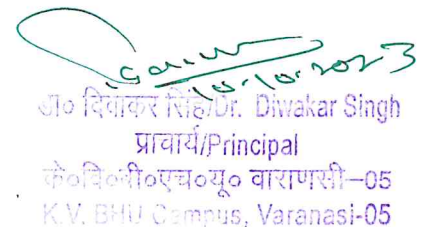 10.10.2023
डा० दिवाकर सिंह/Dr. Diwakar Singh
प्राचार्य/Principal
के०वि०बी०एच०यू० वाराणसी–05
K.V. BHU Campus, Varanasi-05